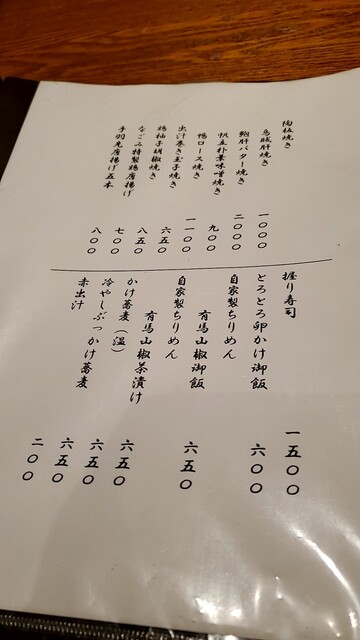 陶板焼き
烏賊肝焼き 一〇〇〇
鮑肝バター焼き 二〇〇〇
帆立朴葉味噌焼き 九〇〇
鴨ロース焼き 一一〇〇
出汁巻き玉子焼き 六五〇
鶏柚子胡椒焼き 八五〇
なごみ特製鶏唐揚げ 七〇〇
手羽先唐揚げ五本 八〇〇
握り寿司 一五〇〇
とろとろ卵かけ御飯 六〇〇
自家製ちりめん
有馬山椒御飯 六五〇
自家製ちりめん
有馬山椒茶漬け 六五〇
かけ蕎麦（温） 六五〇
冷やしぶっかけ蕎麦 六五〇
赤出汁 二〇〇